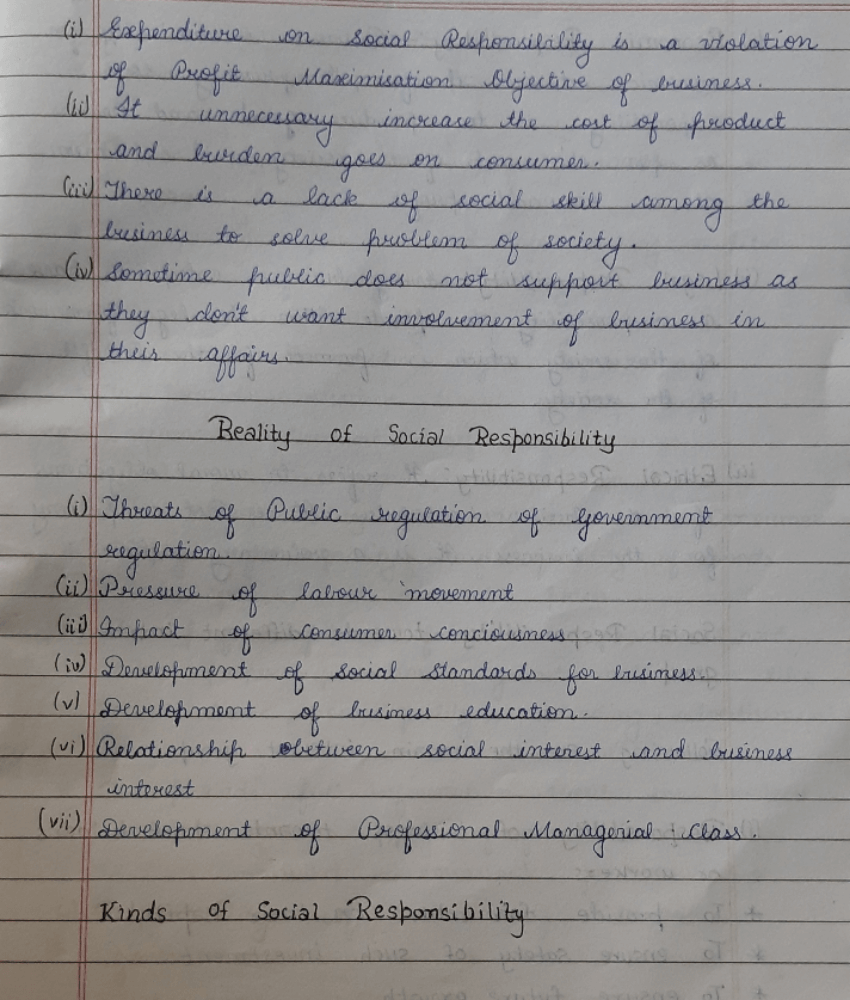 (i) Expenditure on Social Responsibility is a violation
of Profit Maximisation Objective of business.
(ii) It unnecessary increase the cost of product
and burden goes on consumer.
(iii) There is a lack of social skill among the
business to solve problem of society.
(iv) Sometime public does not support business as
they don't want involvement of business in
their affairs.
Reality of Social Responsibility
(i) Threats of Public regulation of Government
regulation.
(ii) Pressure of labour movement
(iii) Impact of consumer conciousness
(iv) Development of social standards for business.
(v) Development of business education.
(vi) Relationship between social interest and business
interest
(vii) Development of Professional Managerial Class.
Kinds of Social Responsibility